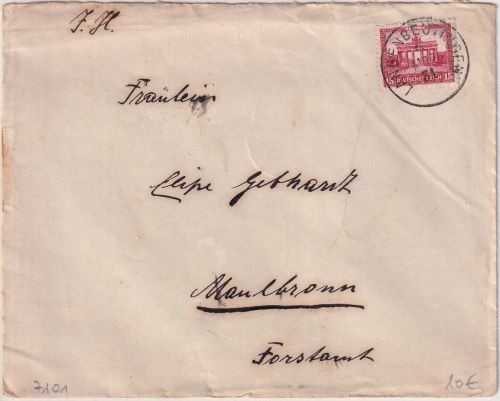 F. H.
LANGENBEUTINGEN
15 DEUTSCHES REICH 15
Fräulein
Elise Gebhardt
Maulbronn
Forstamt
7101
10€